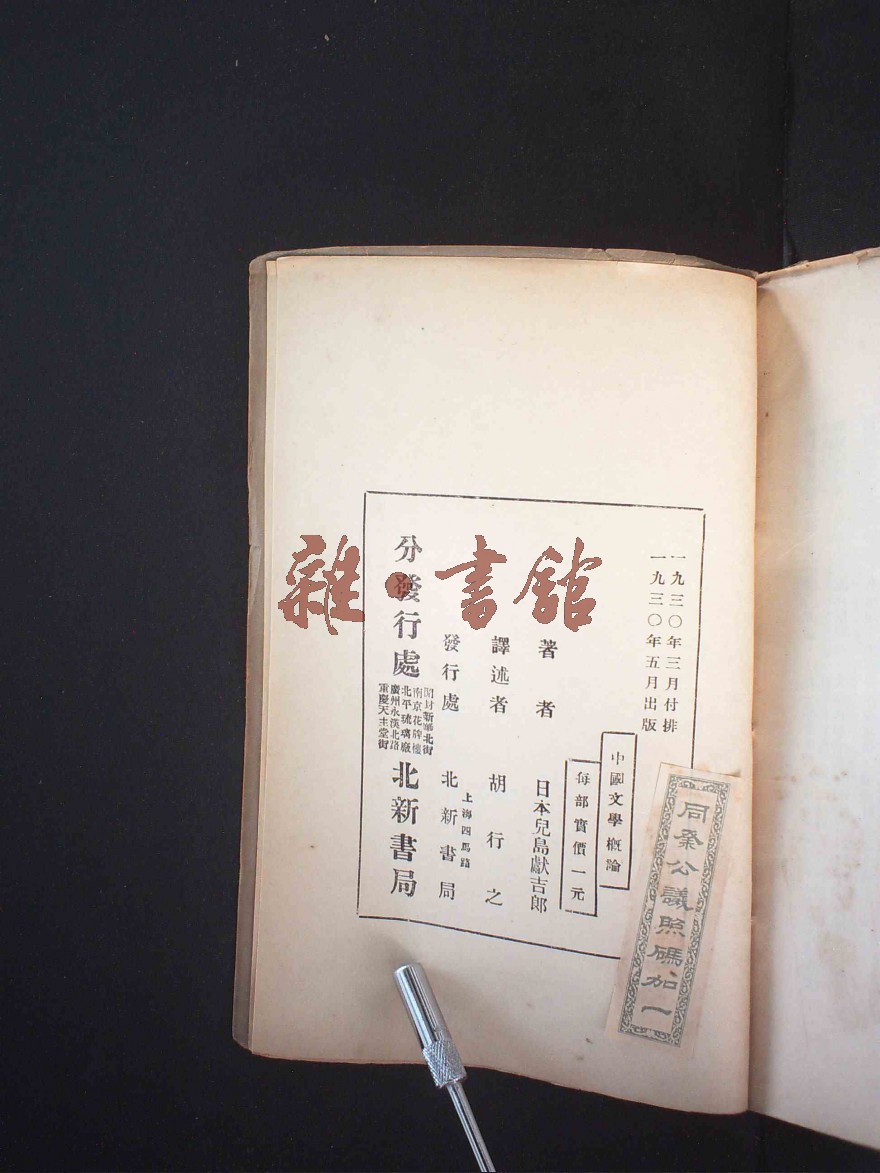 一九三〇年三月付排
一九三〇年五月出版
中國文學概論
每部實價一元
著者 日本兒島獻吉郎
譯述者 胡行之
發行處 上海四馬路 北新書局
分發行處
開封新華北街
南京花牌樓
北平琉璃廠
廣州永漢北路
重慶天主堂街
北新書局
同業公議照碼加一
雜·書館